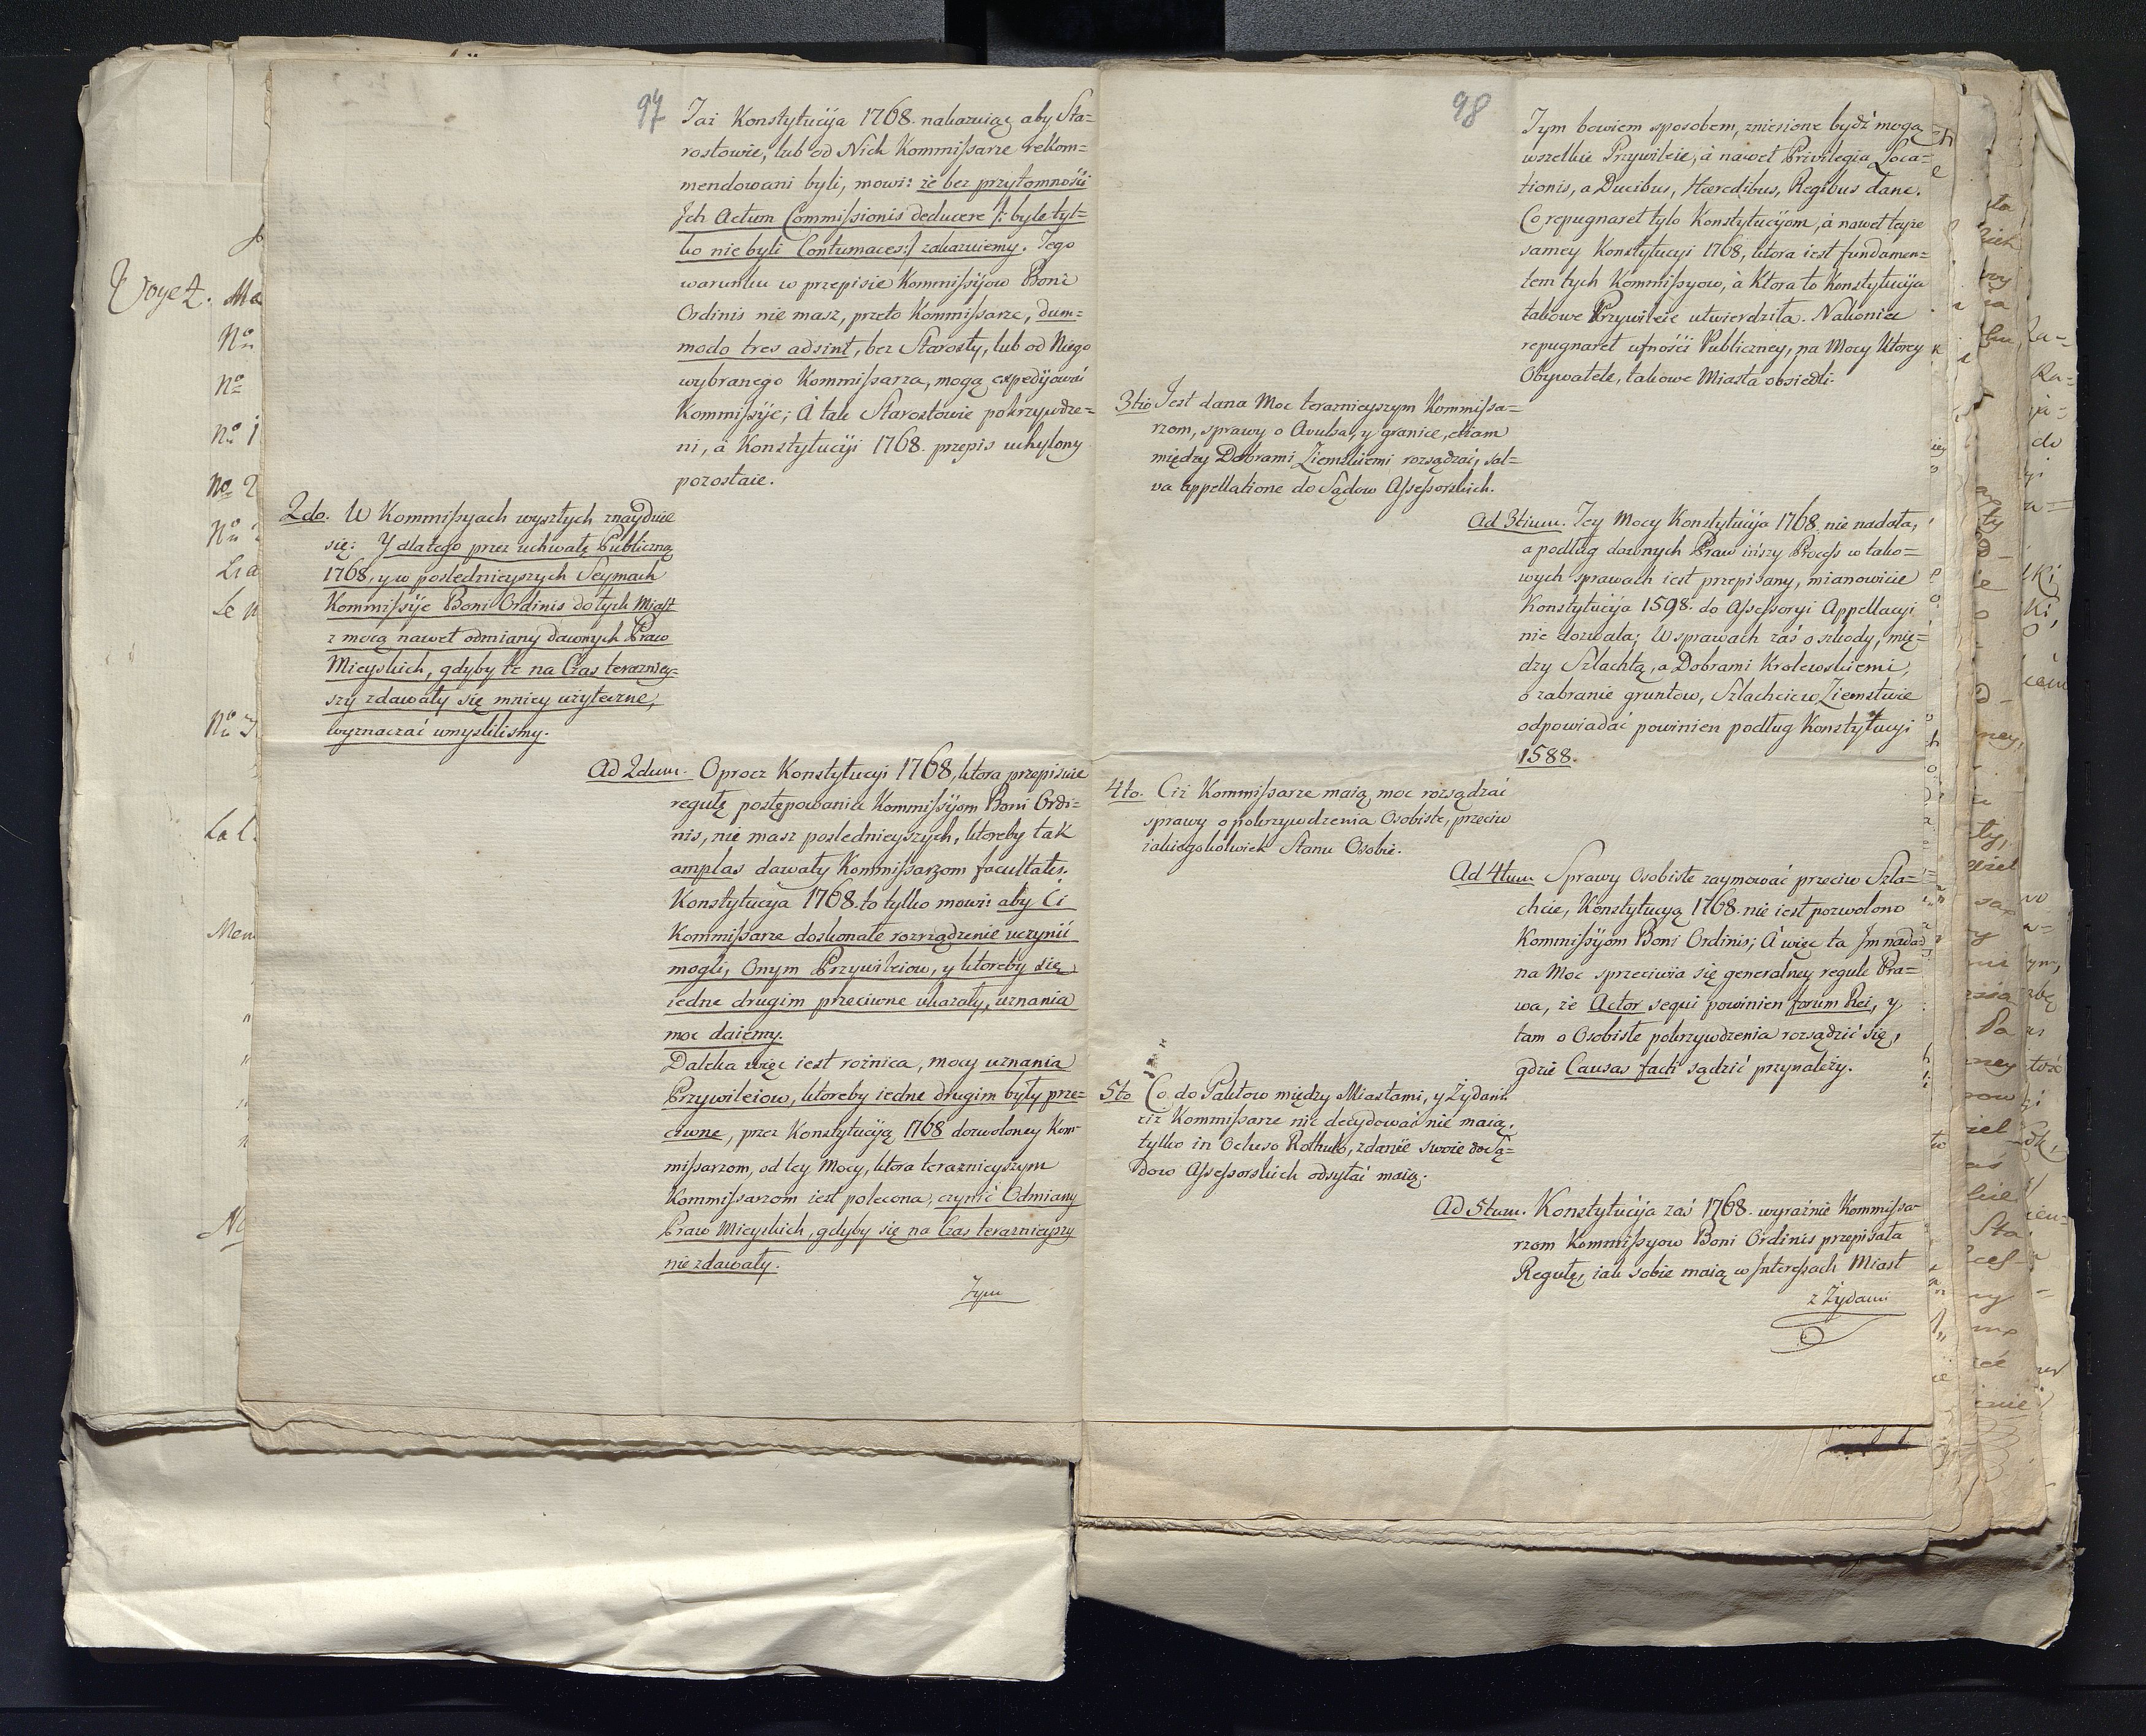 97
Taż Konstytucyja 1768. nakazuiąc aby Sta=
rostowie, lub od Nich Kommißarze rekom=
mendowani byli, mowi: że bez przytomności
Jch Actum Commißionis deducere /: byle tyl=
ko nie byli Contumaces:/ zakazuiemy. Tego
warunku w przepisie Kommißyow Boni
Ordinis nie masz, przeto Kommißarze, dum=
modo tres adsint, bez Starosty, lub od Niego
wybranego Kommißarza, mogą expedyować
Kommißyje; A tak Starostowie pokrzywdze=
ni, a Konstytucyji 1768. przepis uchylony
pozostaie.
2do. W Kommißyach wyszłych znayduie
się: Y dlatego przez uchwałę Publiczną
1768, y w poslednieyszych Seymach
Kommißyje Boni Ordinis do tych Miast
z mocą nawet odmiany dawnych Praw
Mieyskich, gdyby te na Czas teraźniey=
szy zdawały się mniey użyteczne,
wyznaczać umyslilismy.
Ad 2dum. Oprocz Konstytucyi 1768, ktora przepisuie
regułę postępowania Kommißyom Boni Ordi=
nis, nie masz poslednieyszych, ktoreby tak
amplas dawały Kommißarzom facultates.
Konstytucyja 1768. to tylko mowi: aby Ci
Kommißarze doskonałe rozrządzenie uczynić
mogli, Onym Przywileiow, y ktoreby się
iedne drugim przeciwne ukazały, uznania
moc daiemy.
Daleka więc iest rożnica, mocy uznania
Przywileiow, ktoreby iedne drugim były prze=
ciwne, przez Konstytucyją 1768 dozwoloney Kom=
mißarzom, od tey Mocy, ktora teraznieyszym
Kommißarzom iest polecona, czynić Odmiany
Praw Mieyskich, gdyby się na Czas teraznieyszy
nie zdawały.
Tym
98
Tym bowiem sposobem, zniesione bydź mogą
wszelkie Przywileie, a nawet Privilegia Loca=
tionis, a Ducibus, Hæredibus, Regibus dane.
Co repugnaret tylo Konstytucyjom, a nawet teyże
samey Konstytucyi 1768, ktora iest fundamen=
tem tych Kommißyow, a Ktora to Konstytucyja
takowe Przywileie utwierdziła. Nakoniec
repugnaret ufności Publiczney, na Mocy Ktorey
Obywatele, takowe Miasta obsiedli.
3tio Jest dana Moc teraznieyszym Kommißa=
rzom, sprawy o Avulsa, y granice, etiam
między Dobrami Ziemskiemi rozsądzać, sal=
va appellatione do Sądow Aßeßorskich.
Ad 3tium. Tey Mocy Konstytucyja 1768, nie nadała,
a podług dawnych Praw inszy Proceß w tako=
wych sprawach iest przepisany, mianowicie
Konstytucyja 1598. do Aßeßoryi Appellacyi
nie dozwala; W sprawach zaś o szkody, mię=
dzy Szlachtą, a Dobrami Krolewskiemi,
o zabranie gruntow, Szlachcic w Ziemstwie
odpowiadać powinien podług Konstytucyi
1588.
4to. Ciż Kommißarze maią moc rozsądzać
sprawy o pokrzywdzenia Osobiste, przeciw
iakiegokolwiek Stanu Osobie.
Ad 4tum. Sprawy Osobiste zaymować przeciw Szla=
chcie, Konstytucyą 1768. nie iest pozwolono
Kommißyom Boni Ordinis; A więc ta Jm nada=
na Moc sprzeciwia się generalney regule Pra=
wa, że Actor sequi powinien forum Rei, y
tam o Osobiste pokrzywdzenia rozsądzić się,
gdzie Causas facti sądzić przynależy.
5to Co do Paktow między Miastami, y Żydami
ciż Kommißarze nic decydować nie maią,
tylko in Ocluso Rothulo, zdanie swoie do Są=
dow Aßeßorskich odsyłać maią.
Ad 5tum. Konstytucyja zaś 1768. wyraźnie Kommißa=
rzom Kommißyow Boni Ordinis przepisała
Regułę, iak sobie maią w Jntereßach Miast
z Żydami
Voyez.